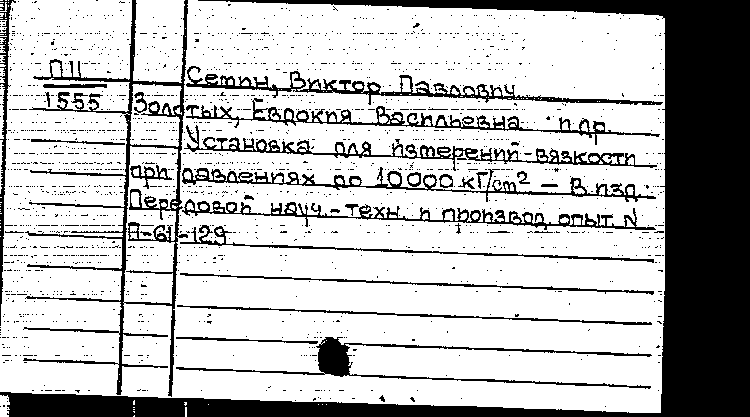 П11
1555
Семин, Виктор Павлович
Золотых, Евдокия Васильевна и др.
Установка для измерений вязкости
при давлениях до 10000 кГ/cm² – В изд.:
Передовой науч.-техн. и производ. опыт. N
П-61-129